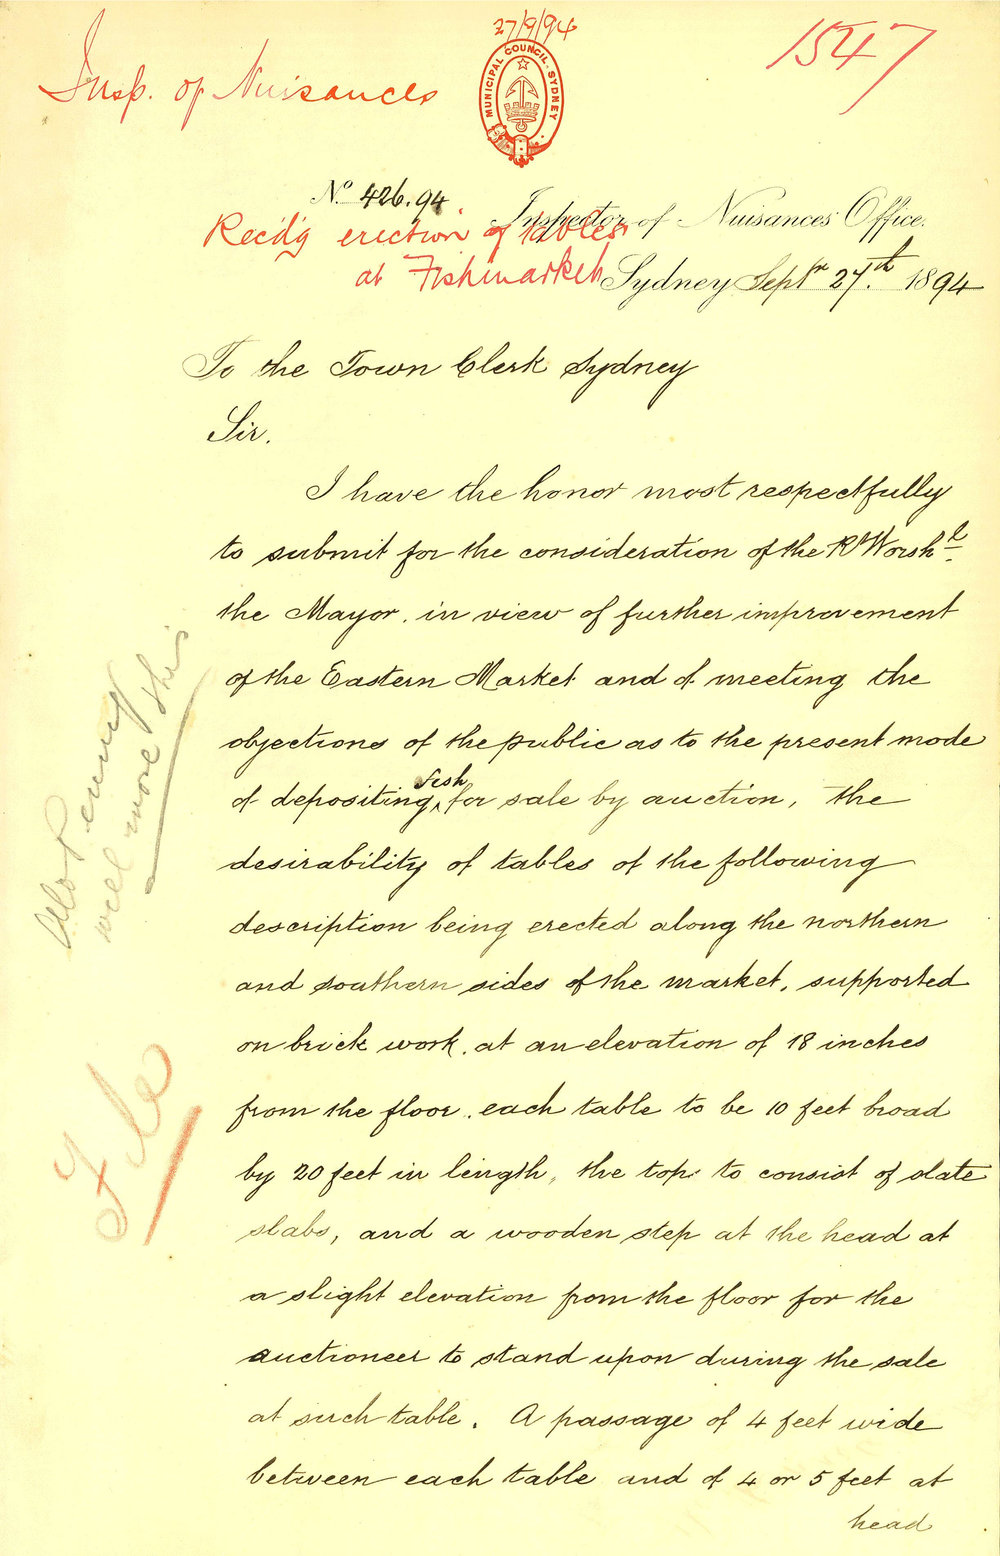 27/9/94
1547
Insp. of Nuisances
MUNICIPAL COUNCIL · SYDNEY
No. 426.94
Inspector of Nuisances Office.
Recd'g erection of tables
at Fishmarket
Sydney Septr 27th 1894
To the Town Clerk Sydney
Sir.
I have the honor most respectfully
to submit for the consideration of the Rt Worshl
the Mayor. in view of further improvement
of the Eastern Market and of meeting the
objections of the public as to the present mode
of depositing fish for sale by auction, the
desirability of tables of the following
description being erected along the northern
and southern sides of the market, supported
on brick work. at an elevation of 18 inches
from the floor. each table to be 10 feet broad
by 20 feet in length, the top to consist of slate
slabs, and a wooden step at the head at
a slight elevation from the floor for the
auctioneer to stand upon during the sale
at such table. A passage of 4 feet wide
between each table and of 4 or 5 feet at
head
will move this
File